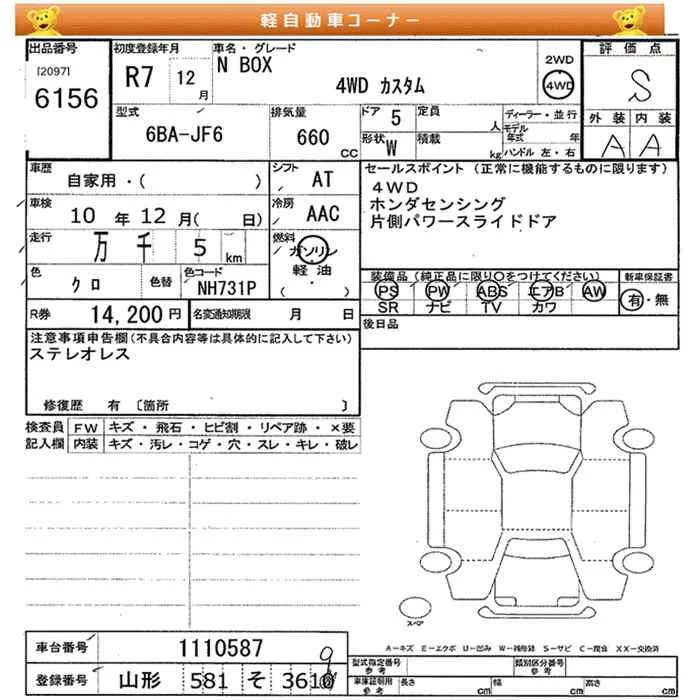 軽自動車コーナー
出品番号
[2097]
6156
初度登録年月
R7 12月
車名・グレード
N BOX
4WD カスタム
2WD
4WD
評価点
S
外装 内装
A A
型式
6BA-JF6
排気量
660 CC
ドア 5
定員 人
形状 W
積載 kg
ディーラー・並行
モデル年式 年
ハンドル 左・右
車歴
自家用・( )
シフト AT
車検 10年12月( 日)
冷房 AAC
走行 万 千 5 km
燃料 ガソリン
軽油
・( )
色 クロ
色替
色コード NH731P
R券 14,200円
名変通知期限 月 日
セールスポイント (正常に機能するものに限ります)
4WD
ホンダセンシング
片側パワースライドドア
装備品(純正品に限り○をつけてください)
PS PW ABS エアB AW
SR ナビ TV カワ
新車保証書
有・無
後日品
注意事項申告欄(不具合内容等は具体的に記入して下さい)
ステレオレス
修復歴 有 〔箇所 〕
検査員記入欄
FW キズ・飛石・ヒビ割・リペア跡・×要
内装 キズ・汚レ・コゲ・穴・スレ・キレ・破レ
スペア
A－キズ E－エクボ U－凹み W－補修跡 S－サビ C－腐食 XX－交換済
車台番号 1110587
登録番号 山形 581 そ 361
9
型式指定番号 参考
類別区分番号 参考
車庫証明用 参考
長さ cm
幅 cm
高さ cm